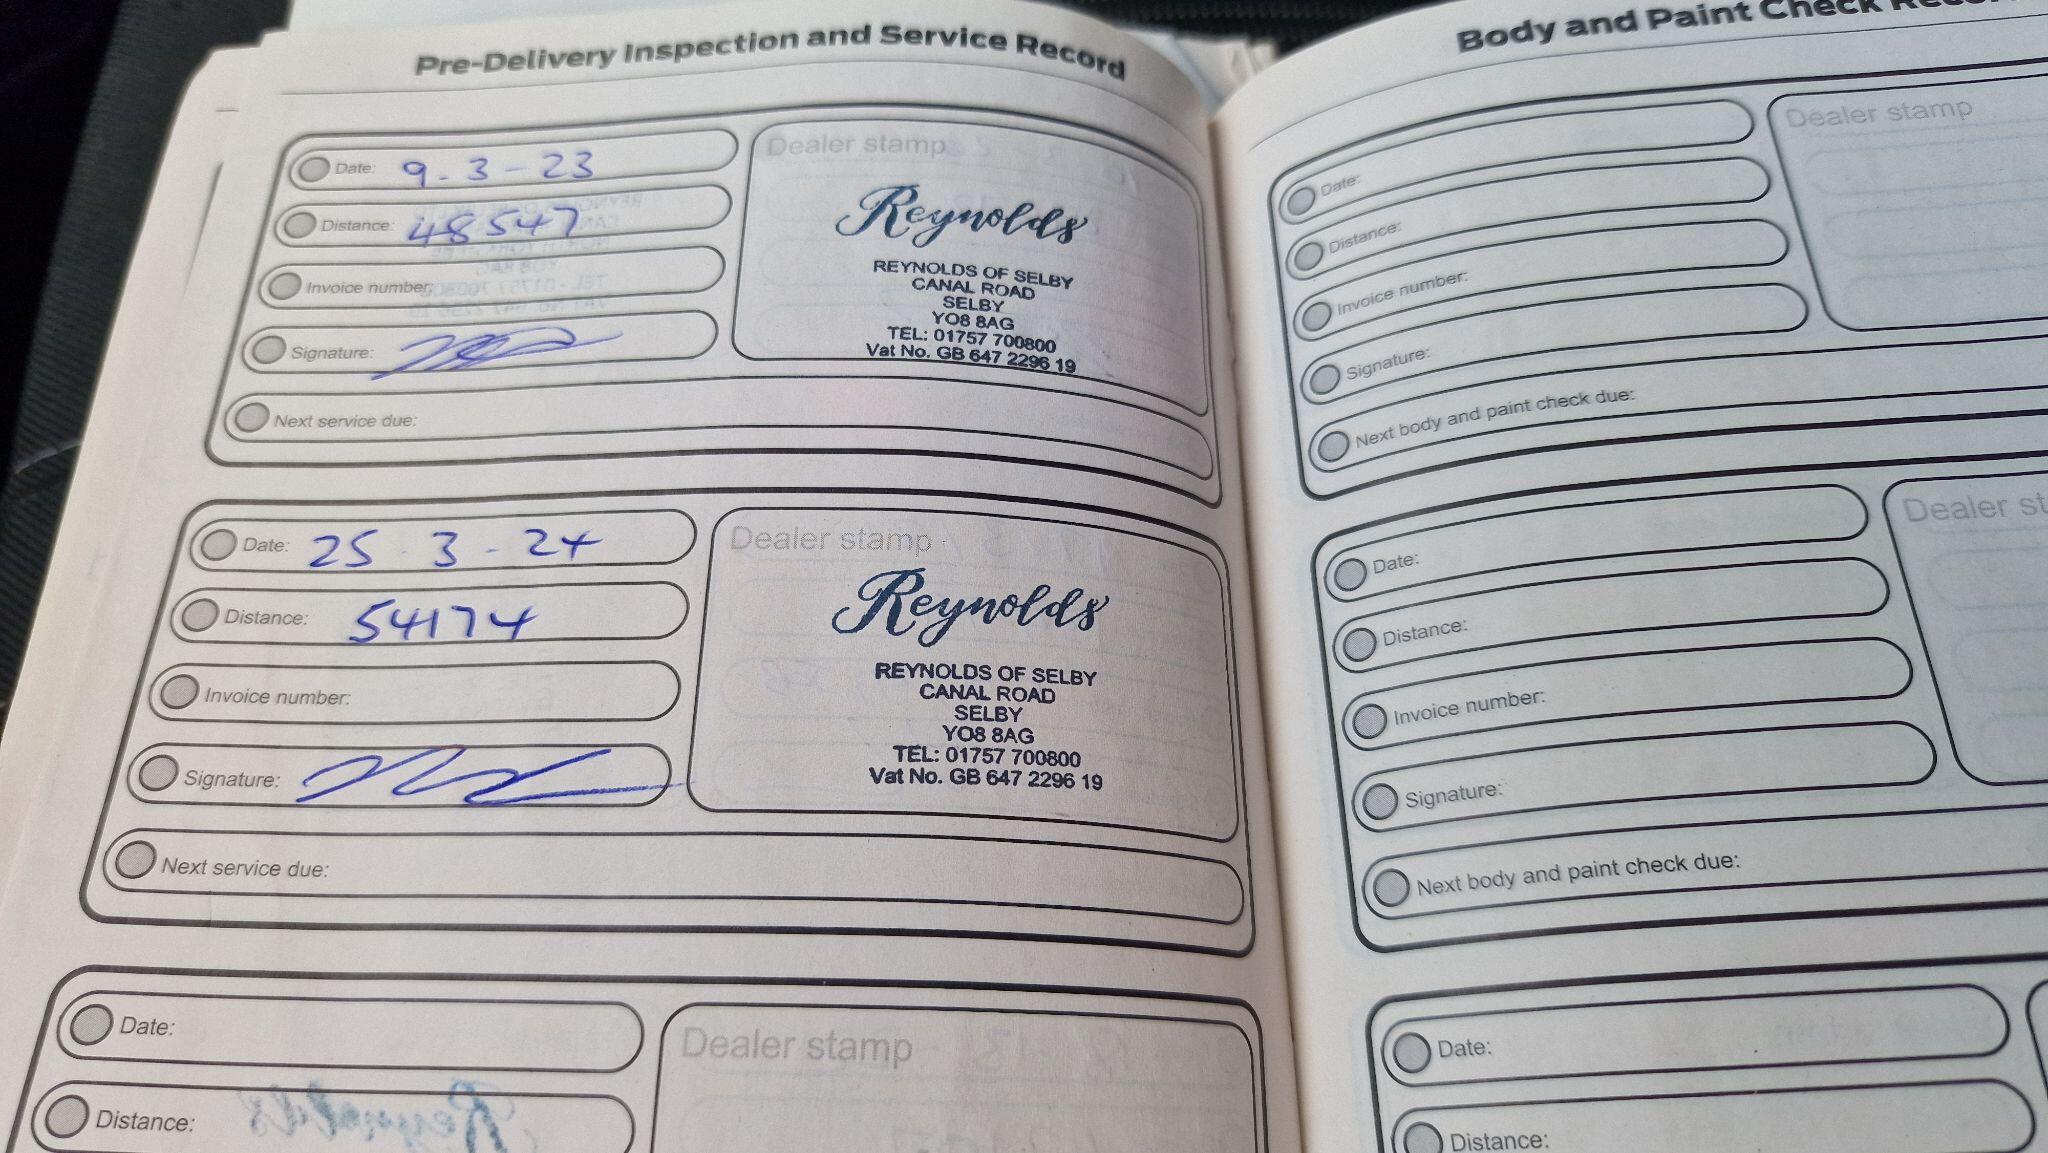 Pre-Delivery Inspection and Service Record
Date: 9.3-23
Distance: 48547
Invoice number:
Signature:
Next service due:
Dealer stamp
Reynolds
REYNOLDS OF SELBY
CANAL ROAD
SELBY
YO8 8AG
TEL: 01757 700800
Vat No. GB 647 2296 19
Date: 25.3-24
Distance: 54174
Invoice number:
Signature:
Next service due:
Dealer stamp
Reynolds
REYNOLDS OF SELBY
CANAL ROAD
SELBY
YO8 8AG
TEL: 01757 700800
Vat No. GB 647 2296 19
Date:
Distance:
Dealer stamp
Body and Paint Check
Date:
Distance:
Invoice number:
Signature:
Next body and paint check due:
Dealer stamp
Date:
Distance:
Invoice number:
Signature:
Next body and paint check due:
Dealer
Date:
Distance: